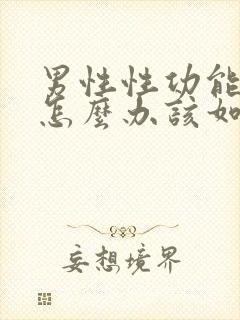 男性性功能
怎麼办該如
妄想境界